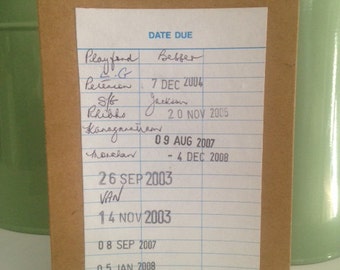 DATE DUE
Playford Besser
E.G
Peterson 7 DEC 2004
S/G Jackson
20 NOV 2005
09 AUG 2007
Monahan - 4 DEC 2008
26 SEP 2003
VAN
14 NOV 2003
08 SEP 2007
05 JAN 2008